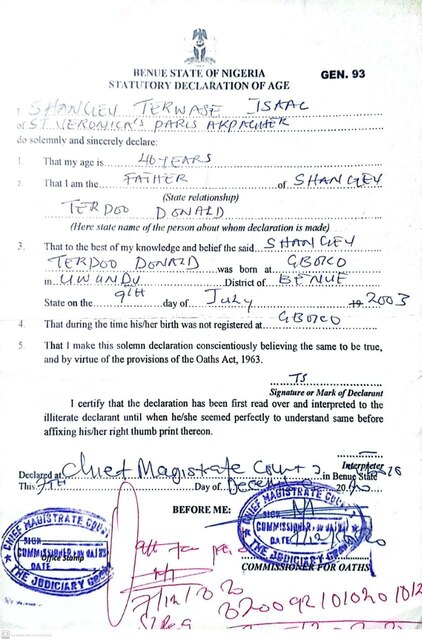 BENUE STATE OF NIGERIA
STATUTORY DECLARATION OF AGE
GEN. 93
I SHANGEV TERWASE ISAAC
of ST. VERONICA'S PARIS AKPAGHER
do solemnly and sincerely declare:
1. That my age is 46 YEARS
2. That I am the FATHER of SHANGEV
(State relationship)
TERDOO DONALD
(Here state name of the person about whom declaration is made)
3. That to the best of my knowledge and belief the said SHANGEV
TERDOO DONALD was born at GBOKO
in UWUNDU District of BENUE
State on the 9TH day of July 19 2003
4. That during the time his/her birth was not registered at GBOKO
5. That I make this solemn declaration conscientiously believing the same to be true,
and by virtue of the provisions of the Oaths Act, 1963.
TS
Signature or Mark of Declarant
I certify that the declaration has been first read over and interpreted to the
illiterate declarant until when he/she seemed perfectly to understand same before
affixing his/her right thumb print thereon.
Interpreter
Declared at Chief Magistrate Court in Benue State
This 7TH Day of December 20
BEFORE ME:
CHIEF MAGISTRATE COURT
SIGN
COMMISSIONER FOR OATHS
Office Stamp
DATE
THE JUDICIARY GBOKO
CHIEF MAGISTRATE COURT
SIGN
COMMISSIONER FOR OATHS
DATE
THE JUDICIARY GBOKO
COMMISSIONER FOR OATHS
7/12/2020